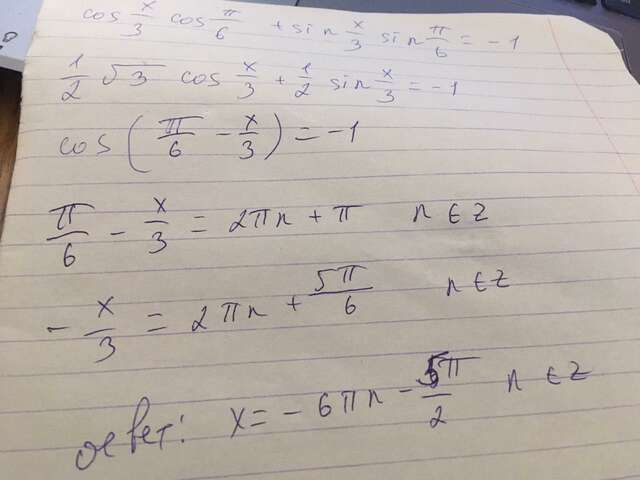 cos x/3 cos π/6 + sin x/3 sin π/6 = -1
1/2 √3 cos x/3 + 1/2 sin x/3 = -1
cos (π/6 - x/3) = -1
π/6 - x/3 = 2πn + π n ∈ Z
- x/3 = 2πn + 5π/6 n ∈ Z
ответ: x = - 6πn - 5π/2 n ∈ Z